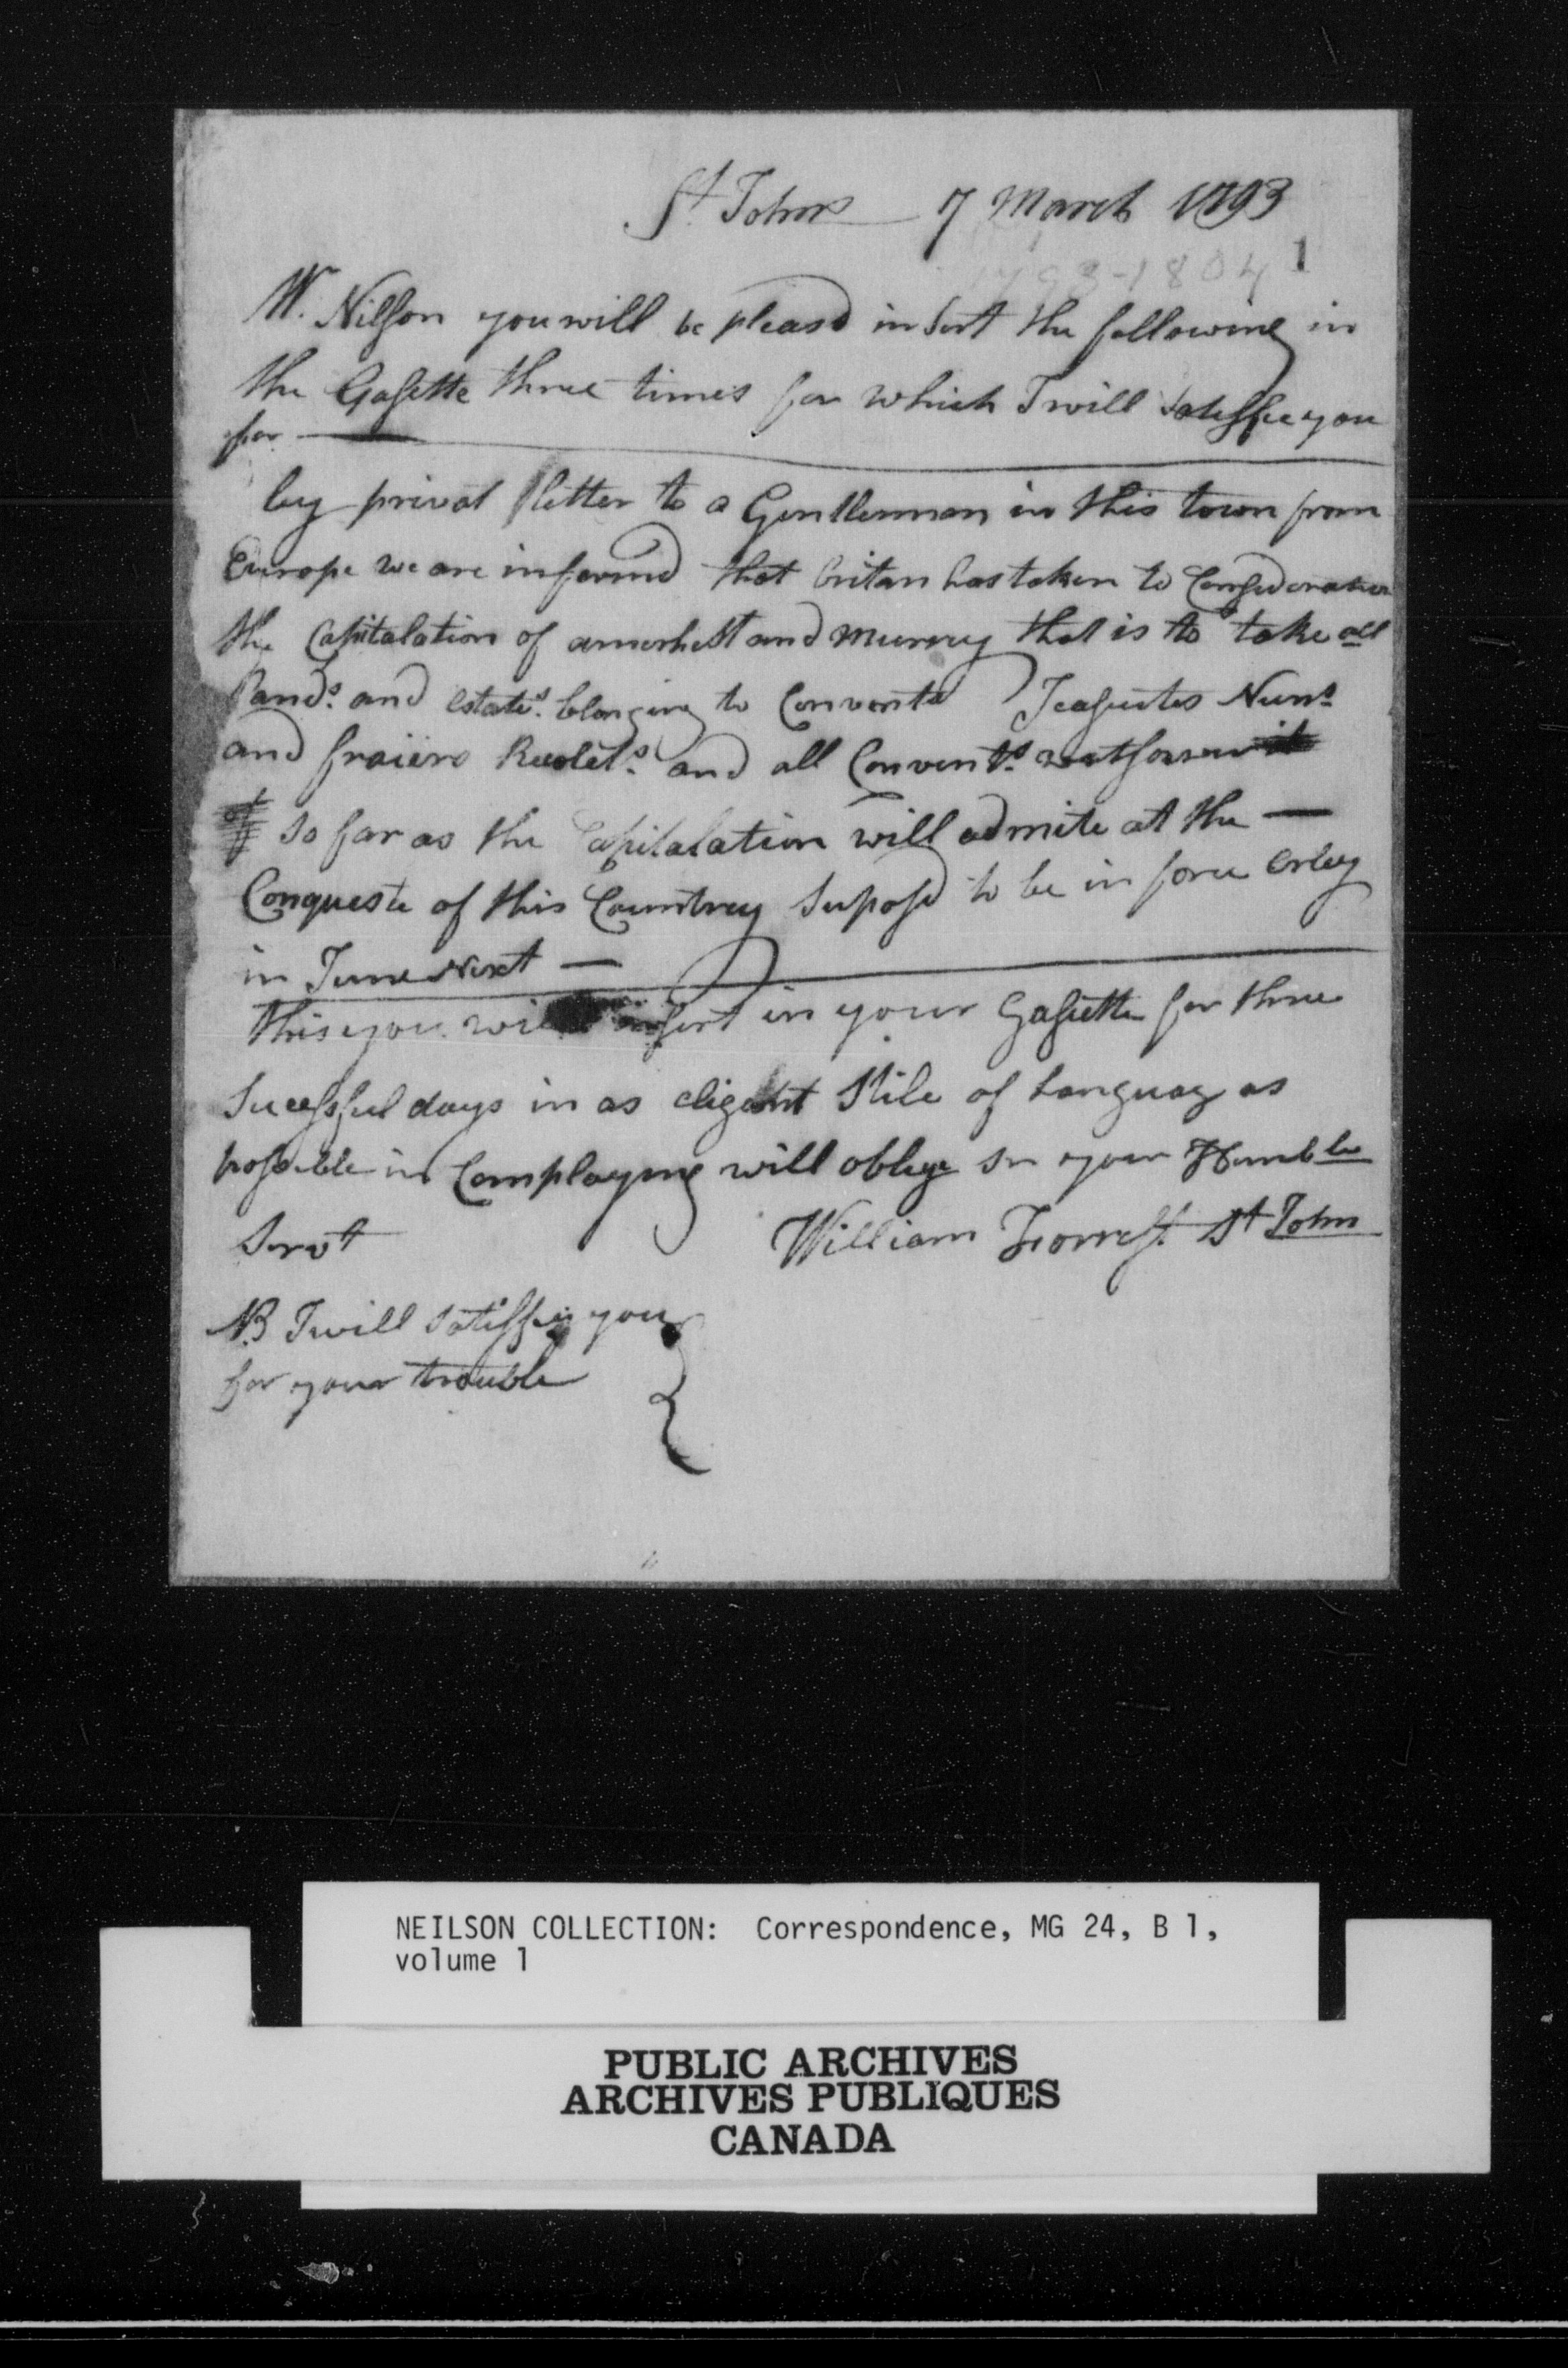 St Johns 7 March 1793
1793-1804 1
Mr. Nilson you will be pleasd insert the following in
the Gasette three times for which I will Satisfie you
for
by privat letter to a Gentlemman in this town from
Europe we are informd that britan has taken to Consideration
the Capitalation of amerhest and murray that is to take all
Lands. and estates. belonging to Convents Jeasuites Nuns
and fraiers Recolets. and all Convents. watsoever
so far as the Capitalation will admite at the —
Conqueste of this Countrey Suposd to be in force Erley
in June Next —
this you will insert in your Gasette for three
Sucessful days in as eligant Stile of Languag as
possible in Complaying will oblige Sir your Humble
Servt William Forrest St John
NB I will Satisfie you
for your trouble
NEILSON COLLECTION: Correspondence, MG 24, B 1,
volume 1
PUBLIC ARCHIVES
ARCHIVES PUBLIQUES
CANADA